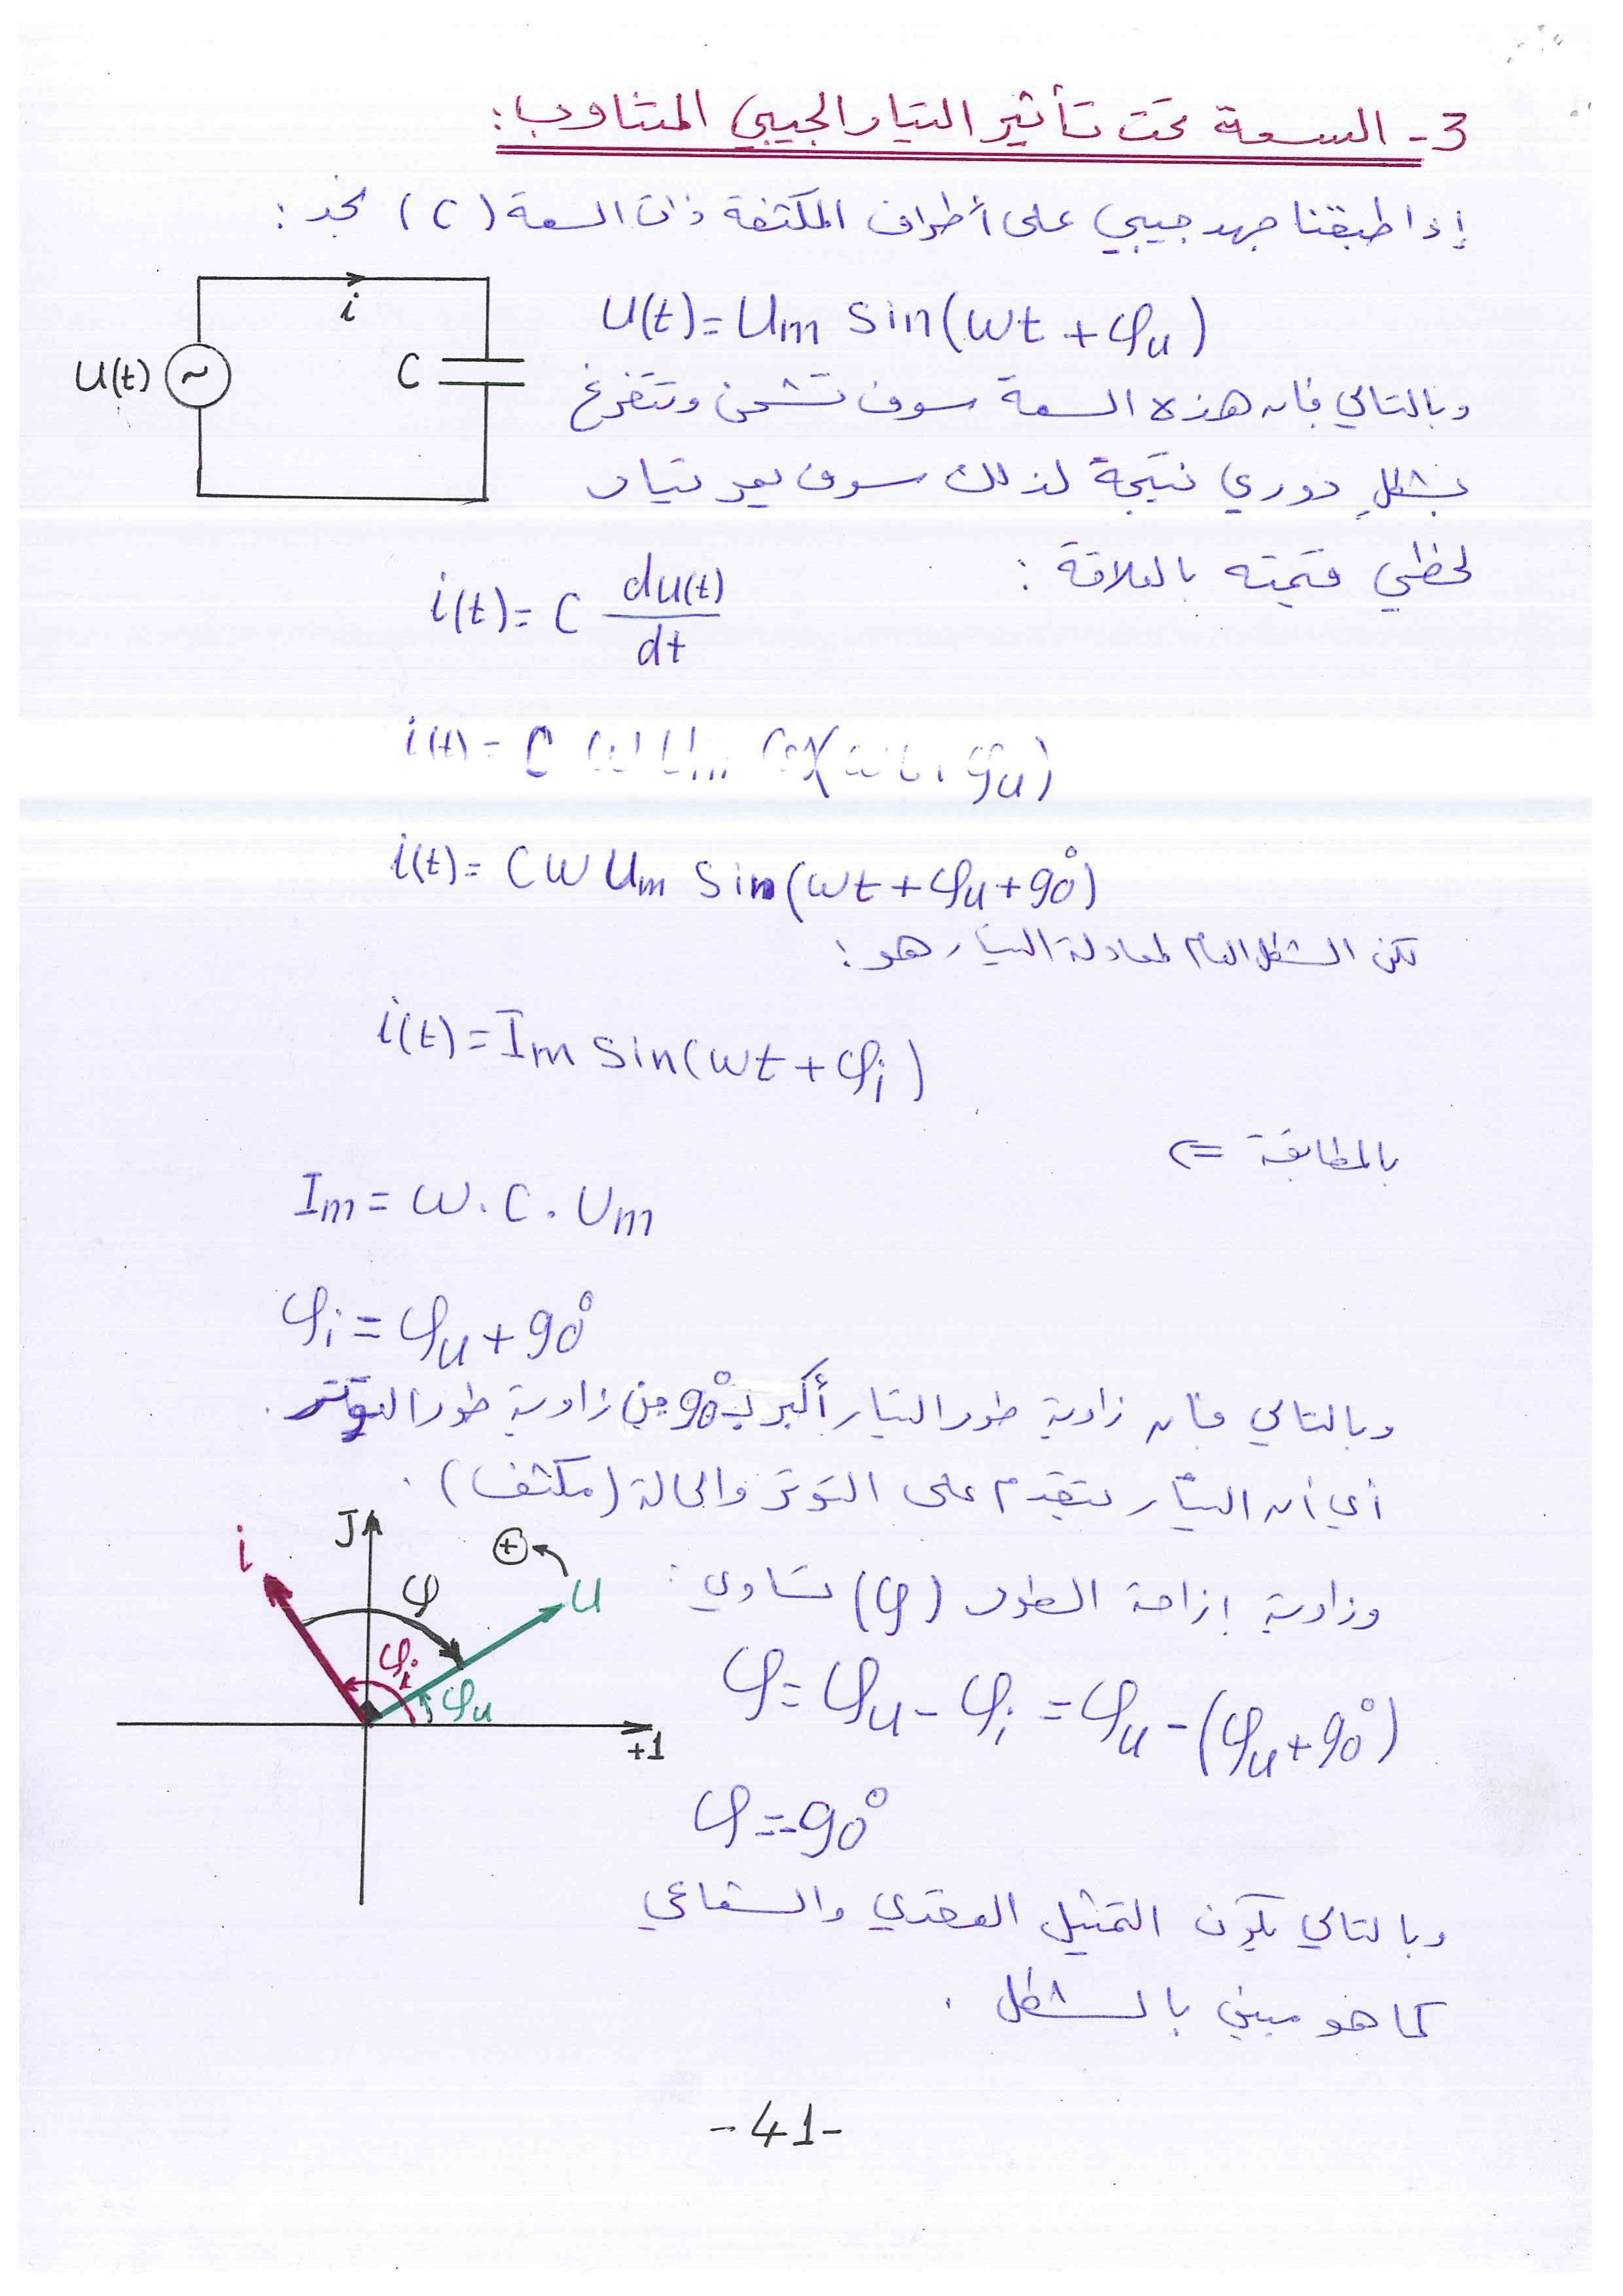 3- السعة تحت تأثير التيار الجيبي المتناوب:
إذا طبقنا جهد جيبي على أطراف المكثفة ذات السعة (C) نجد:
i
U(t) ~ C
U(t)=Um Sin(ωt+φu)
وبالتالي فإن هذه السعة سوف تشحن وتتفرغ
بشكلٍ دوري نتيجة لذلك سوف يمر تيار
لحظي قيمته بالعلاقة:
i(t)= C du(t)/dt
i(t)= C ω Um (ωt+φu)
i(t)= Cω Um Sin(ωt+φu+90°)
لكن الشكل العام لمعادلة التيار هو:
i(t)=Im Sin(ωt+φi)
بالمطابقة ⇐
Im= ω.C.Um
φi=φu+90°
وبالتالي فإن زاوية طور التيار أكبر بـ 90° من زاوية طور التوتر.
أي أن التيار يتقدم على التوتر والحالة (مكثف).
وزاوية إزاحة الطور (φ) تساوي:
J
i
φ
+
U
φi
φu
+1
φ=φu-φi=φu-(φu+90°)
φ=-90°
وبالتالي يكون التمثيل العقدي والشعاعي
كما هو مبين بالشكل.
-41-